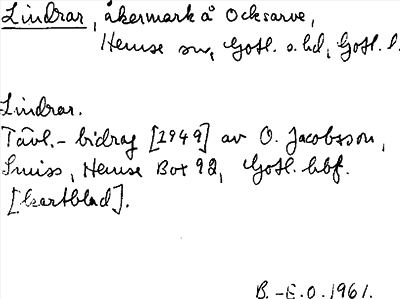 Lindrar, åkermark å Ocksarve,
Hemse sn, Gotl. s. hd, Gotl. l.
Lindrar.
Tävl.-bidrag [1949] av O. Jacobsson,
Smiss, Hemse Box 92, Gotl. hbf.
[kartblad].
B.-E.O. 1961.